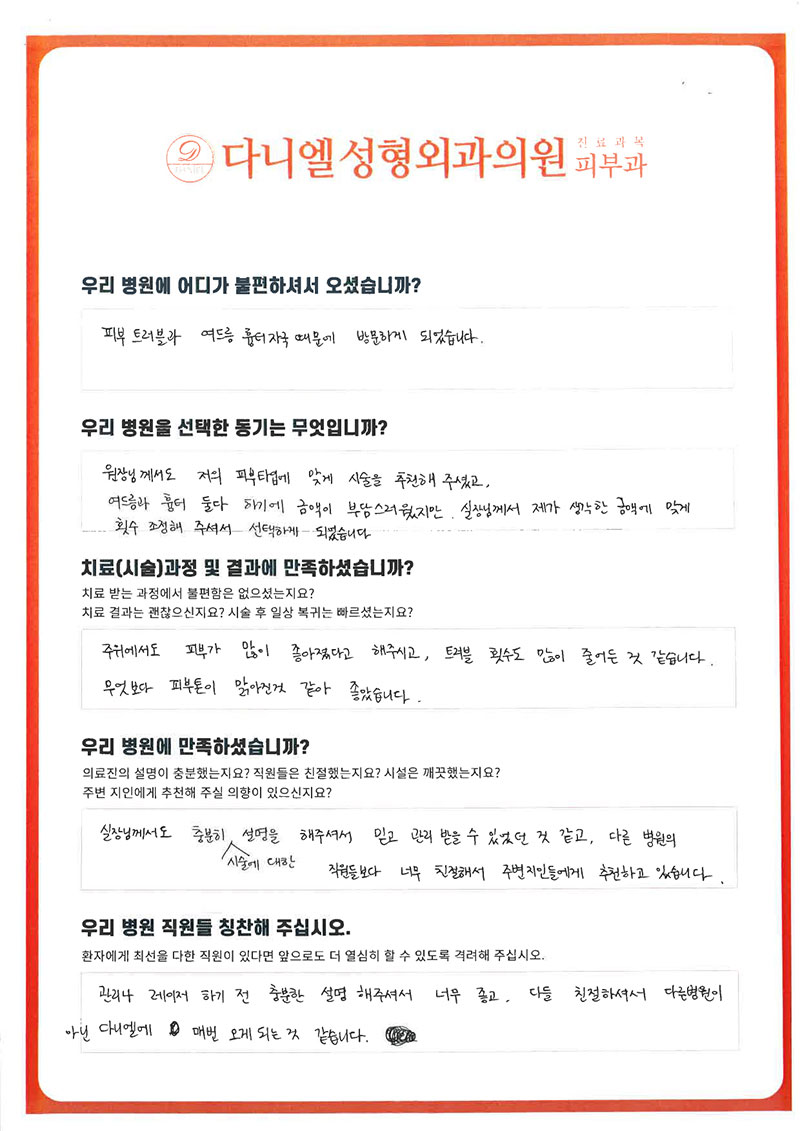 다니엘성형외과의원 진료과목 피부과
우리 병원에 어디가 불편하셔서 오셨습니까?
피부 트러블과 여드름 흉터자국 때문에 방문하게 되었습니다.
우리 병원을 선택한 동기는 무엇입니까?
원장님께서도 저의 피부타입에 맞게 시술을 추천해 주셨고,
여드름과 흉터 둘다 하기에 금액이 부담스러웠지만. 실장님께서 제가 생각한 금액에 맞게
횟수 조정해 주셔서 선택하게 되었습니다
치료(시술)과정 및 결과에 만족하셨습니까?
치료 받는 과정에서 불편함은 없으셨는지요?
치료 결과는 괜찮으신지요? 시술 후 일상 복귀는 빠르셨는지요?
주위에서도 피부가 많이 좋아졌다고 해주시고, 트러블 횟수도 많이 줄어든 것 같습니다.
무엇보다 피부톤이 맑아진것 같아 좋았습니다.
우리 병원에 만족하셨습니까?
의료진의 설명이 충분했는지요? 직원들은 친절했는지요? 시설은 깨끗했는지요?
주변 지인에게 추천해 주실 의향이 있으신지요?
실장님께서도 충분히 설명을 해주셔서 믿고 관리 받을 수 있었던 것 같고, 다른 병원의
시술에 대한 직원들보다 너무 친절해서 주변지인들에게 추천하고 있습니다.
우리 병원 직원들 칭찬해 주십시오.
환자에게 최선을 다한 직원이 있다면 앞으로도 더 열심히 할 수 있도록 격려해 주십시오.
관리나 레이저 하기 전 충분한 설명 해주셔서 너무 좋고, 다들 친절하셔서 다른병원이
아닌 다니엘에 매번 오게 되는 것 같습니다.